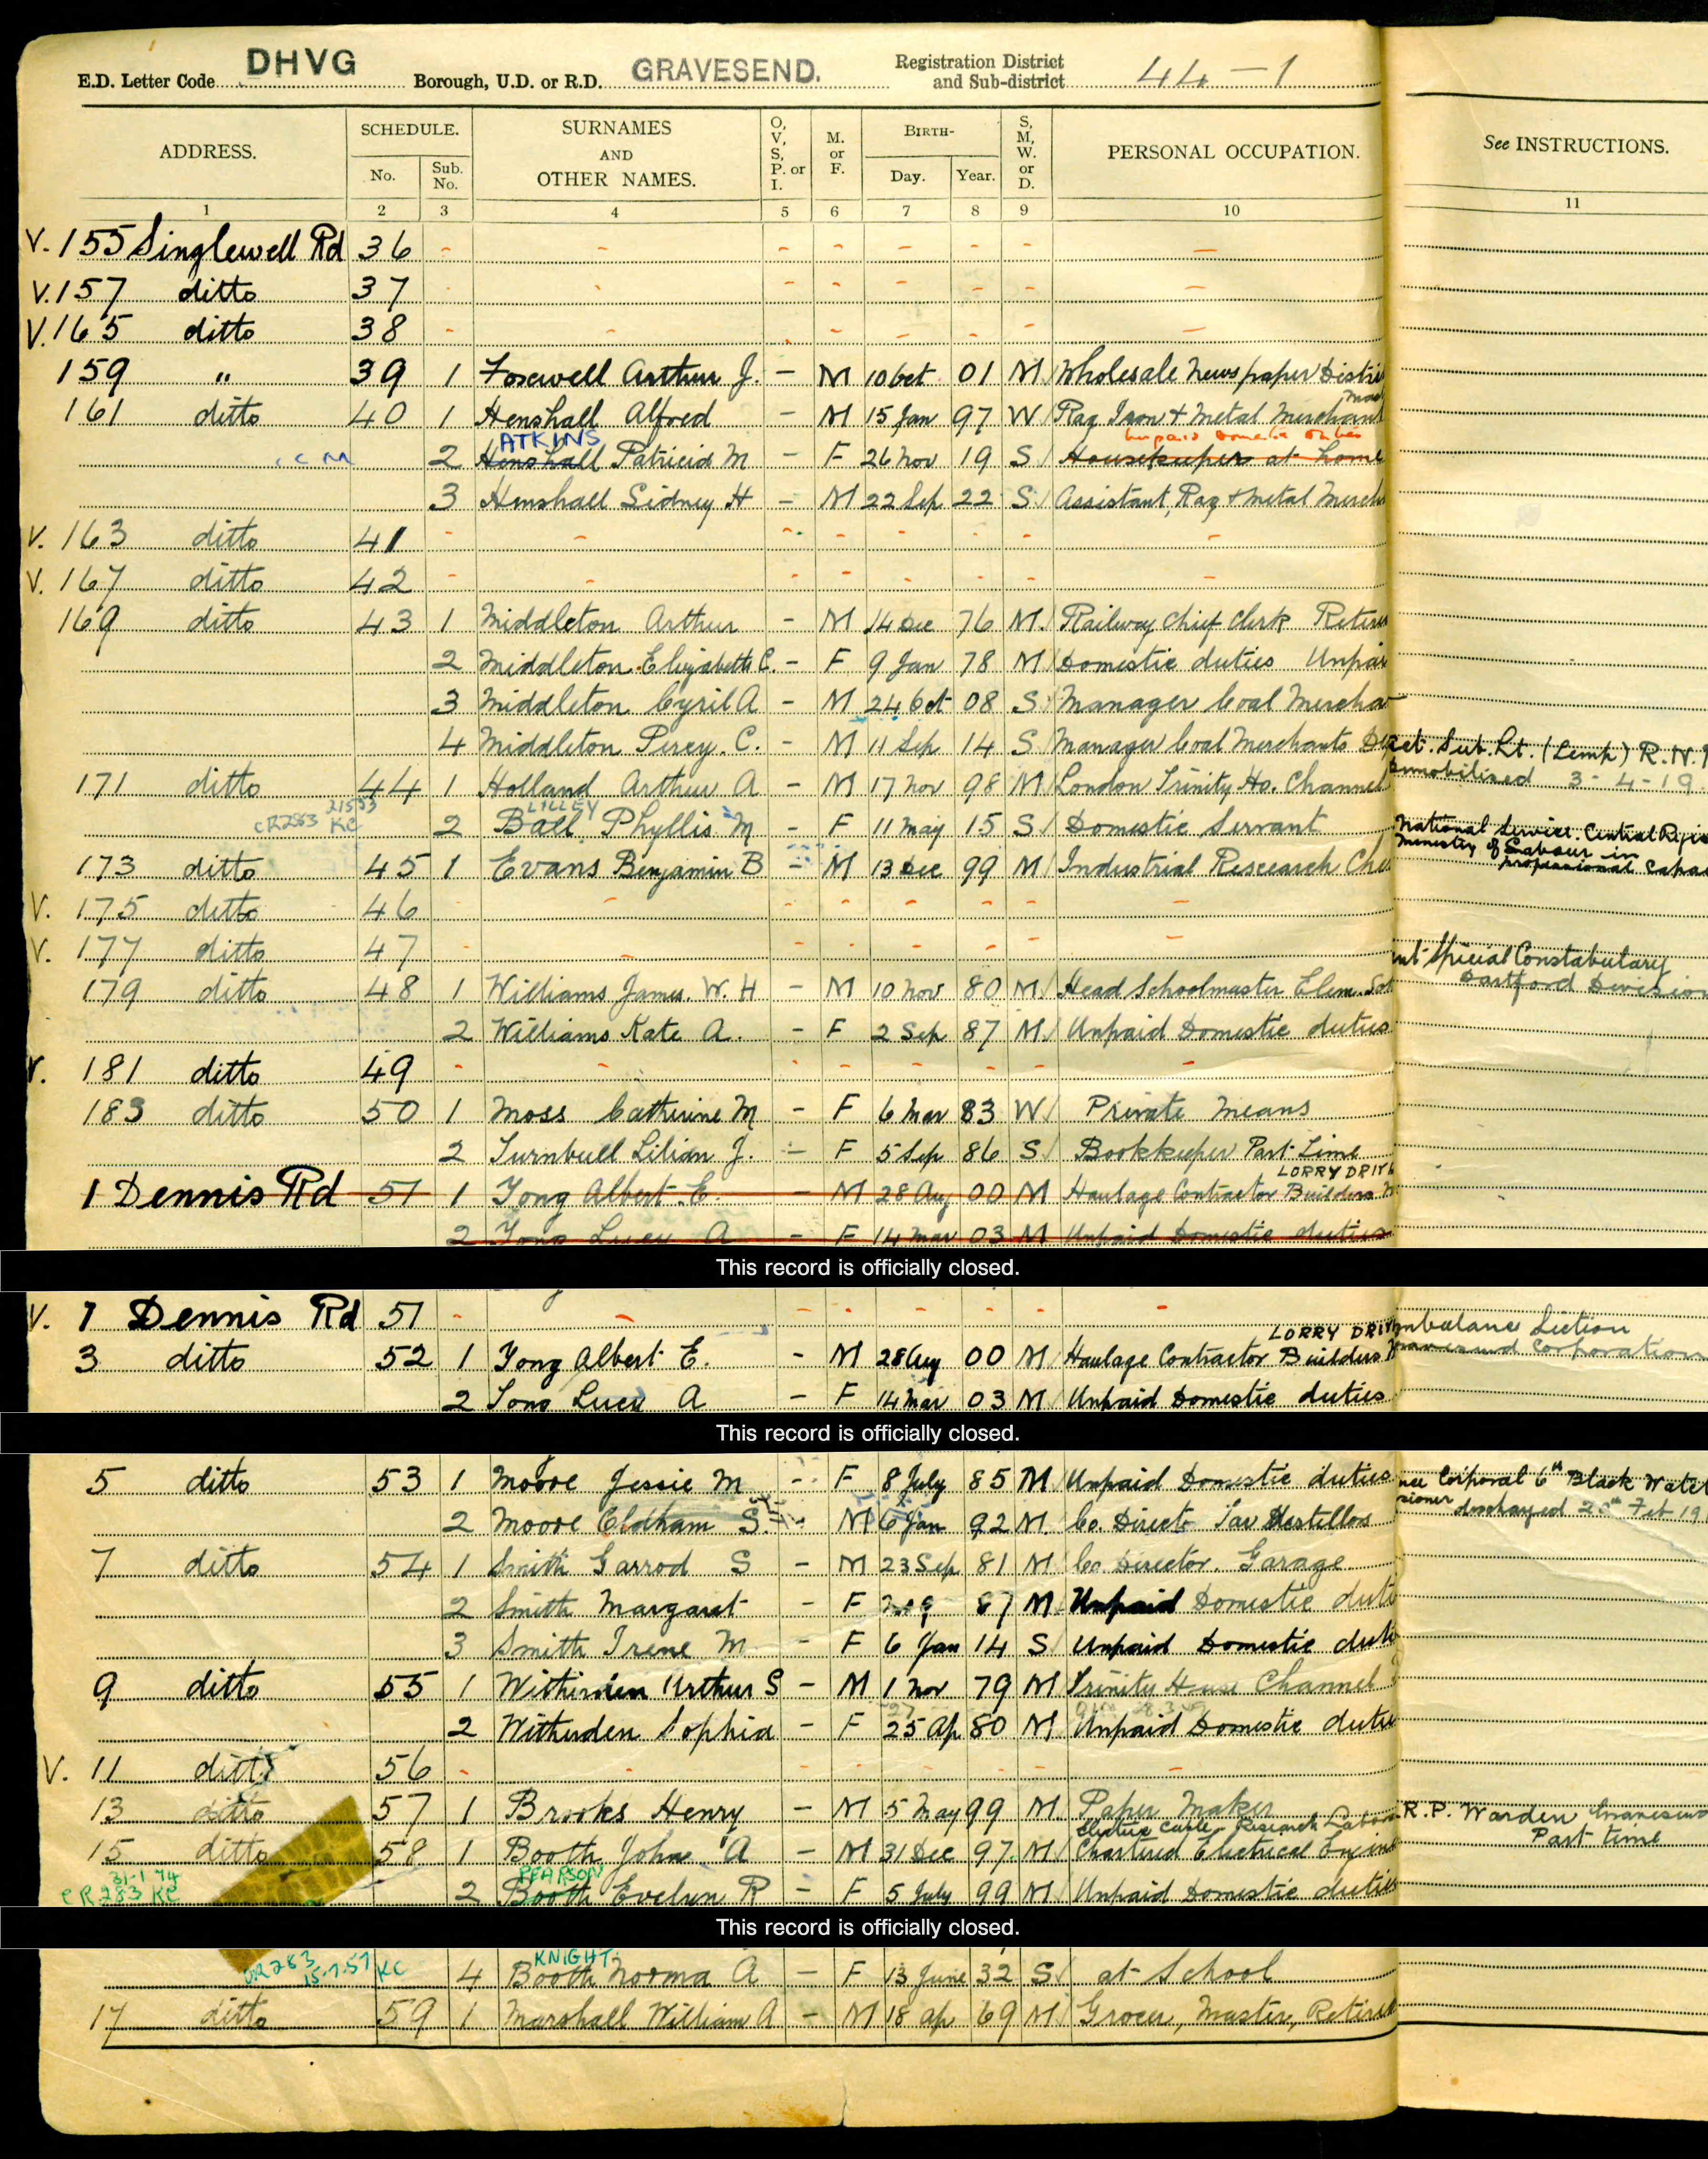 E.D. Letter Code DHVG Borough, U.D. or R.D. GRAVESEND. Registration District and Sub-district 44-1
ADDRESS. SCHEDULE. No. Sub. No. SURNAMES AND OTHER NAMES. O, V, S, P. or I. M. or F. BIRTH- Day. Year. S, M, W. or D. PERSONAL OCCUPATION. See INSTRUCTIONS.
1 2 3 4 5 6 7 8 9 10 11
V. 155 Singlewell Rd 36 - - - - - - - -
V. 157 ditto 37 - - - - - - - -
V. 165 ditto 38 - - - - - - -
159 " 39 1 Foxwell Arthur J. - M 10 Oct 01 M Wholesale Newspaper Distri
161 ditto 40 1 Henshall Alfred - M 15 Jan 97 W Rag Iron & Metal Merchant
ATKINS
2 Henshall Patricia M - F 26 Nov 19 S Housekeeper at home
3 Henshall Sidney H - M 22 Sep 22 S Assistant, Rag & Metal Mercha
V. 163 ditto 41 - - - - - - - -
V. 167 ditto 42 - - - - - - - -
169 ditto 43 1 Middleton Arthur - M 14 Dec 76 M Railway Chief Clerk Retire
2 Middleton Elizabeth C. - F 9 Jan 78 M Domestic duties Unpai
3 Middleton Cyril A - M 24 Oct 08 S Manager Coal Mercha
4 Middleton Percy. C. - M 11 Sep 14 S Manager Coal Merchants Sub. Lt. (Temp) R.N.
171 ditto 44 1 Holland Arthur A - M 17 Nov 98 M London Trinity Ho. Channel mobilised 3-4-19
LILLEY
CR283 KC 2 Ball Phyllis M - F 11 May 15 S Domestic Servant National Service. Central Regis
Ministry of Labour in
173 ditto 45 1 Evans Benjamin B - M 13 Dec 99 M Industrial Research Che professional capa
V. 175 ditto 46 - - - - - - - -
V. 177 ditto 47 - - - - - - - -
Special Constabulary
179 ditto 48 1 Williams James. W. H - M 10 Nov 80 M Head Schoolmaster Elem. Sc Dartford Division
2 Williams Kate A. - F 2 Sep 87 M Unpaid Domestic duties
V. 181 ditto 49 - - - - - - - -
183 ditto 50 1 Moss Catherine M - F 6 Mar 83 W Private Means
2 Turnbull Lilian J. - F 5 Sep 86 S Bookkeeper Part Time
LORRY DRIV
1 Dennis Rd 51 1 Tong Albert E. - M 28 Aug 00 M Haulage Contractor Builders
2 Tong Lucy A - F 14 Mar 03 M Unpaid Domestic duties
This record is officially closed.
V. 1 Dennis Rd 51 - - - - - - - -
LORRY DRIV mbulance Section
3 ditto 52 1 Tong Albert E. - M 28 Aug 00 M Haulage Contractor Builders Corporation
2 Tong Lucy A - F 14 Mar 03 M Unpaid Domestic duties
This record is officially closed.
5 ditto 53 1 Moore Jessie M - F 8 July 85 M Unpaid Domestic duties Corporal 6th Black Watch
discharged Feb 19
2 Moore Eldham S. - M 6 Jan 92 M. Co. Directo Tar Destillos
7 ditto 54 1 Smith Garrod S - M 23 Sep 81 M Co. Director. Garage
2 Smith Margaret - F 87 M Unpaid Domestic duti
3 Smith Irene M - F 6 Jan 14 S Unpaid Domestic duti
9 ditto 55 1 Witherden Arthur S - M 1 Nov 79 M Trinity House Channel
2 Witherden Sophia - F 25 Ap 80 M Unpaid Domestic dutie
V. 11 ditto 56 - - - - - - - -
13 ditto 57 1 Brooks Henry - M 5 May 99 M Paper Maker R.P. Warden
Part time
Electric Cable Research Labor
15 ditto 58 1 Booth John A - M 31 Dec 97 M Chartered Electrical Engine
PEARSON
31-1-74
CR283 KC 2 Booth Evelyn R - F 5 July 99 M Unpaid Domestic duties
This record is officially closed.
KNIGHT
CR283 15.7.57 KC 4 Booth Norma A - F 13 June 32 S at School
17 ditto 59 1 Marshall William A - M 18 Ap 69 M Grocer, Master, Retired